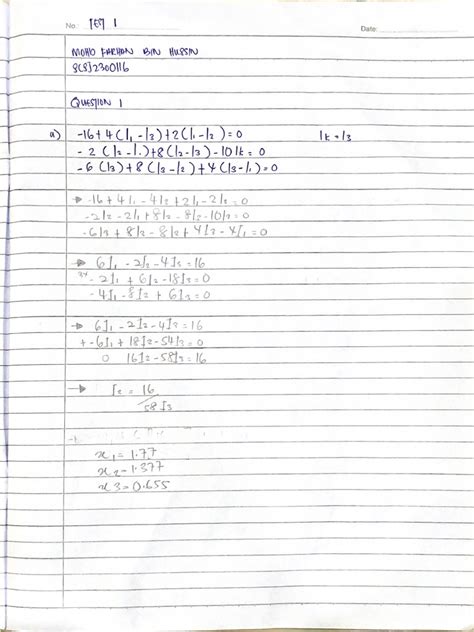 No: TEST 1 Date:
MOHD FARHAN BIN HUSSIN
SCSJ2300116
QUESTION 1
a) -16+4(I₁-I₃)+2(I₁-I₂)=0 Ik=I3
-2(I₂-I₁)+8(I₂-I₃)-10Ik=0
-6(I₃)+8(I₃-I₂)+4(I₃-I₁)=0
→ -16+4I₁-4I₃+2I₁-2I₂=0
-2I₂-2I₁+8I₂-8I₃-10I₃=0
-6I₃+8I₃-8I₂+4I₃-4I₁=0
→ 6I₁-2I₂-4I₃=16
3x -2I₁+6I₂-18I₃=0
-4I₁-8I₂+6I₃=0
→ 6I₁-2I₂-4I₃=16
+-6I₁+18I₂-54I₃=0
0 16I₂-58I₃=16
→ I₂ = 16/58I₃
x₁=1.77
x₂=1.377
x3=0.655